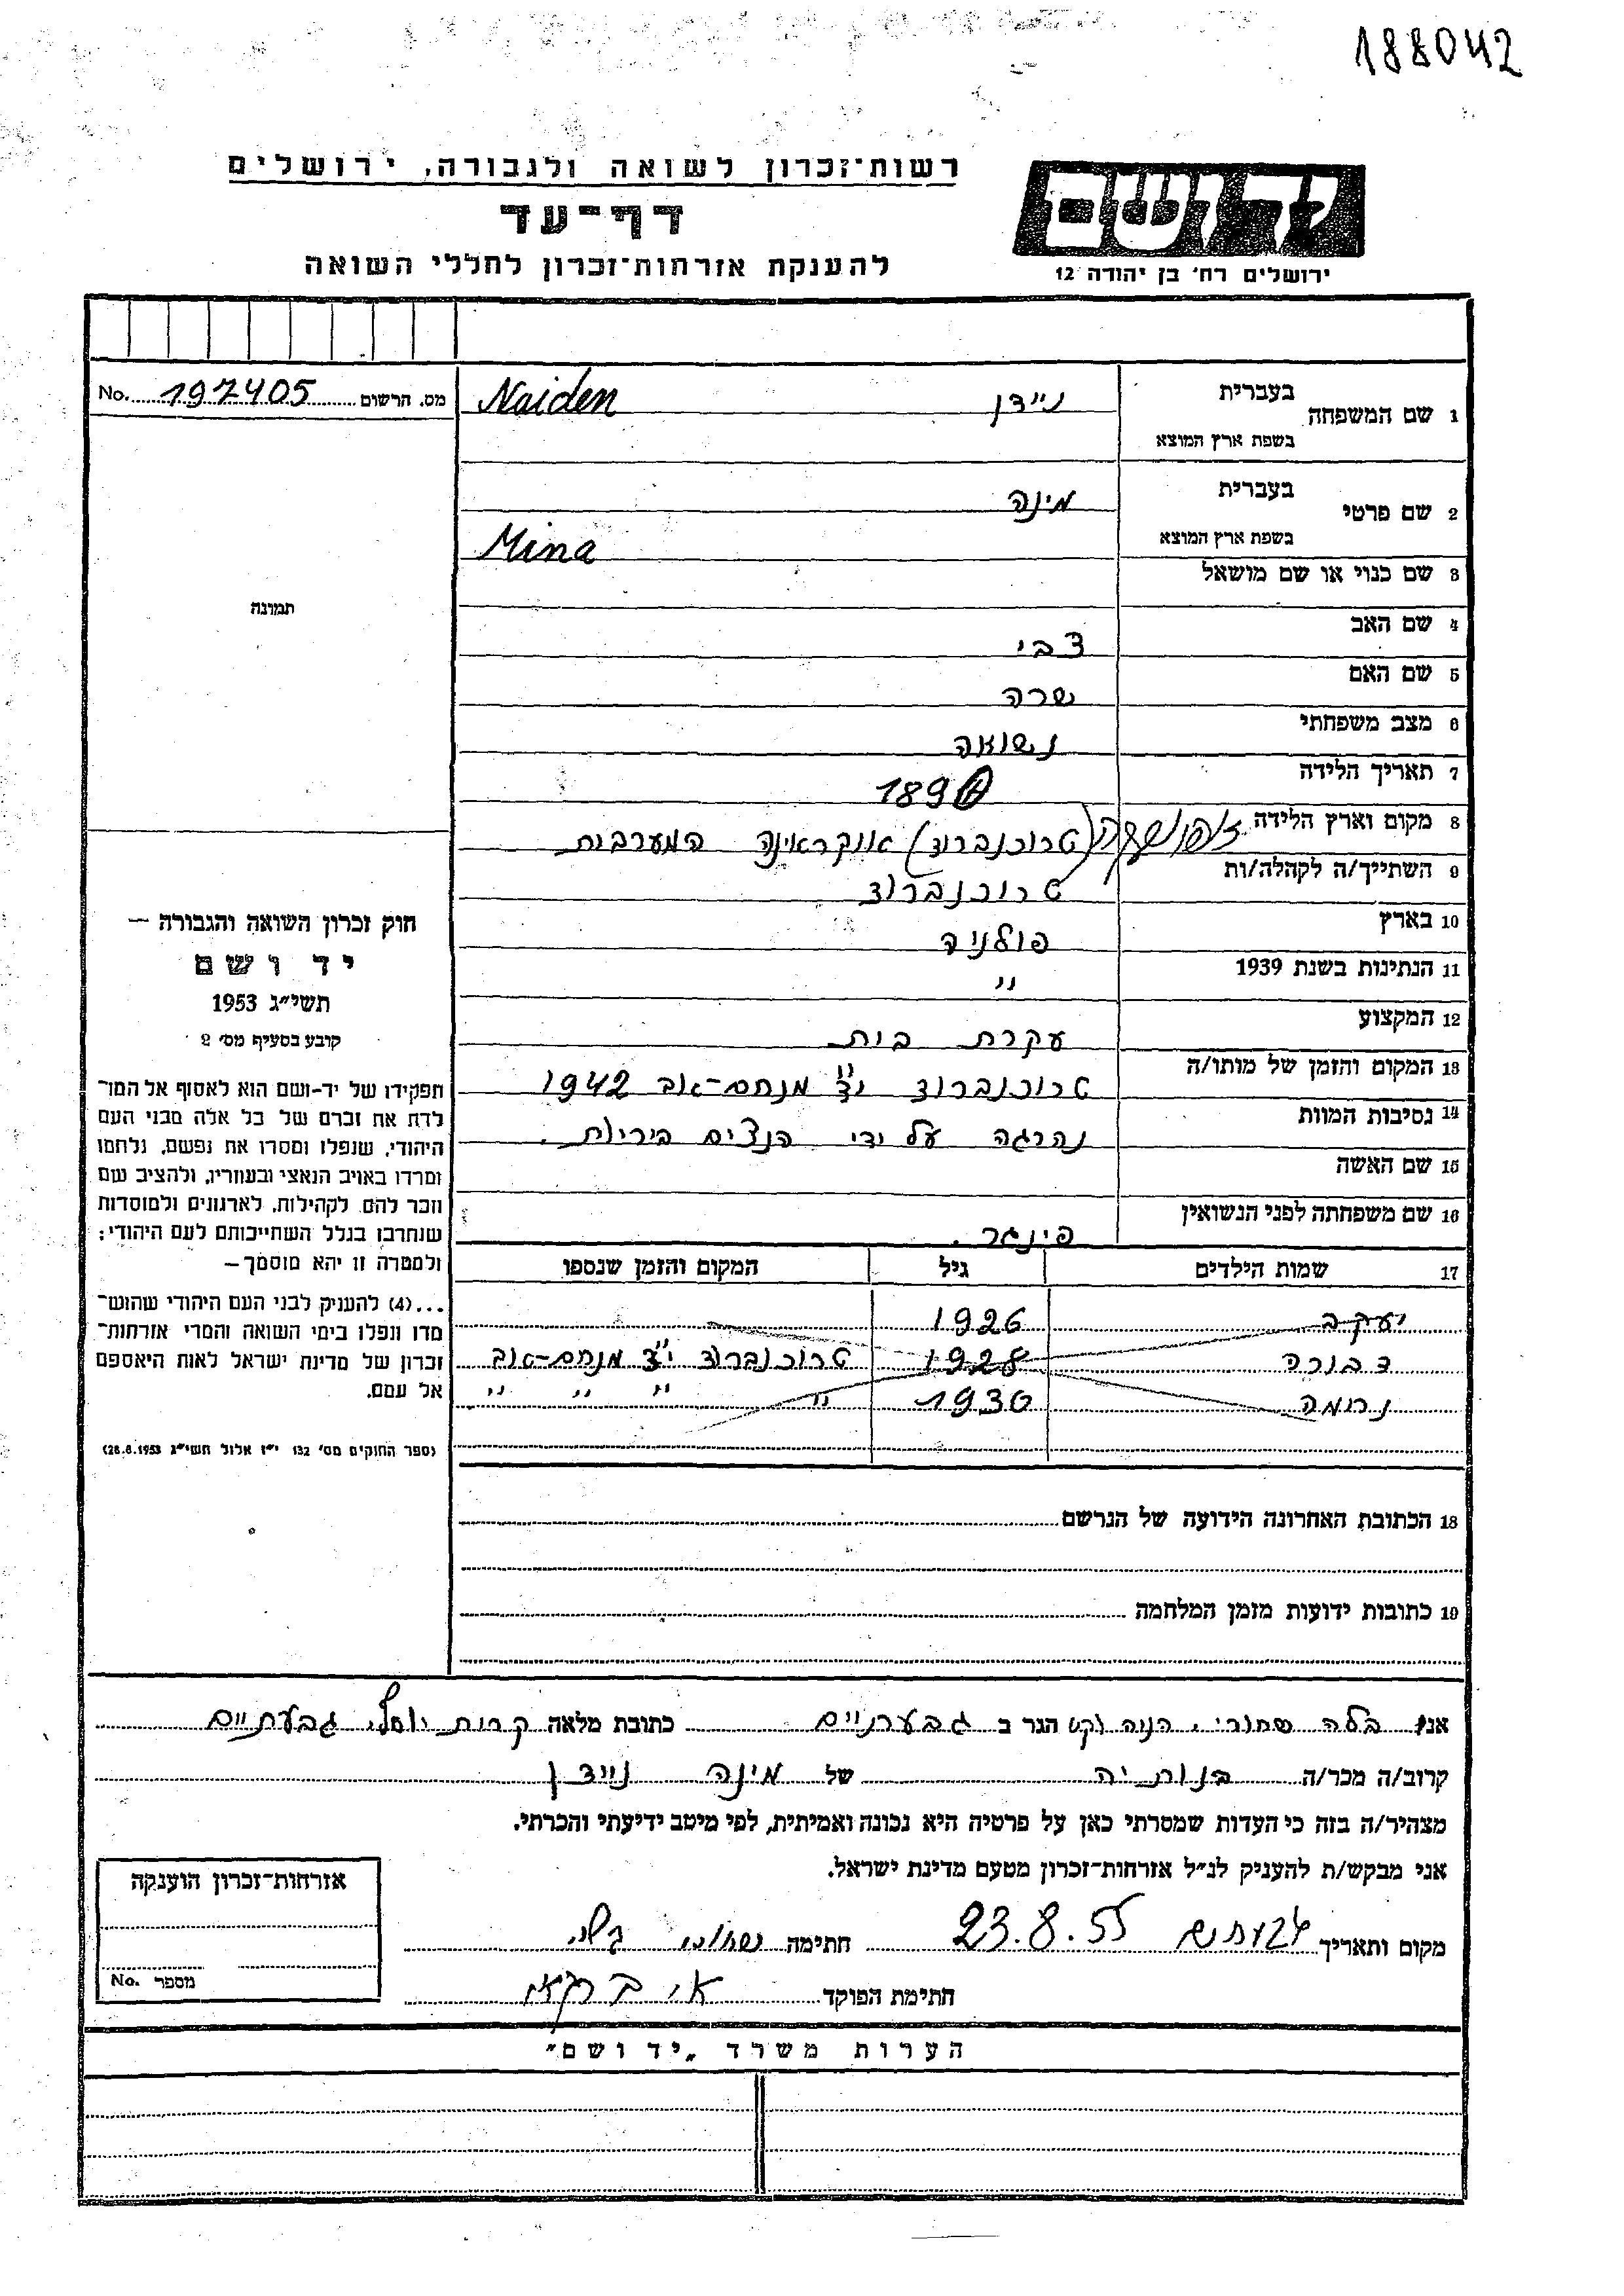 188042
רשות־זכרון לשואה ולגבורה, ירושלים
דף־עד
להענקת אזרחות־זכרון לחללי השואה
יד ושם
ירושלים רח' בן יהודה 12
מס. הרשום 197405 No.
1 שם המשפחה
בעברית
ניידן Naiden
בשפת ארץ המוצא
2 שם פרטי
בעברית מינה
בשפת ארץ המוצא Mina
3 שם כנוי או שם מושאל
4 שם האב צבי
5 שם האם שרה
6 מצב משפחתי נשואה
7 תאריך הלידה 189
8 מקום וארץ הלידה (טרוכנברוד) אוקראינה המערבית
9 השתייך/ה לקהלה/ות טרוכנברוד
10 בארץ פולניה
11 הנתינות בשנת 1939 "
12 המקצוע עקרת בית
13 המקום והזמן של מותו/ה טרוכנברוד מנחם-אב 1942
14 נסיבות המוות נהרגה על ידי הנצים ביריות.
15 שם האשה
16 שם משפחתה לפני הנשואין פינגר.
17 שמות הילדים גיל המקום והזמן שנספו
יעקב 1926
דבורה 1928 טרוכנברוד מנחם-אב
נחמה 1930 " " " "
18 הכתובת האחרונה הידועה של הנרשם
19 כתובות ידועות מזמן המלחמה
תמונה
חוק זכרון השואה והגבורה —
יד ושם
תשי"ג 1953
קובע בסעיף מס' 2
תפקידו של יד-ושם הוא לאסוף אל המו־
לדת את זכרם של כל אלה מבני העם
היהודי, שנפלו ומסרו את נפשם, נלחמו
ומרדו באויב הנאצי ובעוזריו, ולהציב שם
וזכר להם, לקהילות, לארגונים ולמוסדות
שנחרבו בגלל השתייכותם לעם היהודי;
ולמטרה זו יהא מוסמך—
...(4) להעניק לבני העם היהודי שהוש־
מדו ונפלו בימי השואה והמרי אזרחות־
זכרון של מדינת ישראל לאות היאספם
אל עמם.
(ספר החוקים מס' 132 י"ז אלול תשי"ג 28.8.1953)
אני בלה שחורי, הגר ב גבעתיים כתובת מלאה קרית יוסף, גבעתיים
קרוב/ה מכר/ה של מינה ניידן
מצהיר/ה בזה כי העדות שמסרתי כאן על פרטיה היא נכונה ואמיתית, לפי מיטב ידיעתי והכרתי.
אני מבקש/ת להעניק לנ"ל אזרחות־זכרון מטעם מדינת ישראל.
מקום ותאריך 23.8.55 חתימה שחורי בלה
חתימת הפוקד
אזרחות־זכרון הוענקה
מספר No.
הערות משרד „יד ושם"